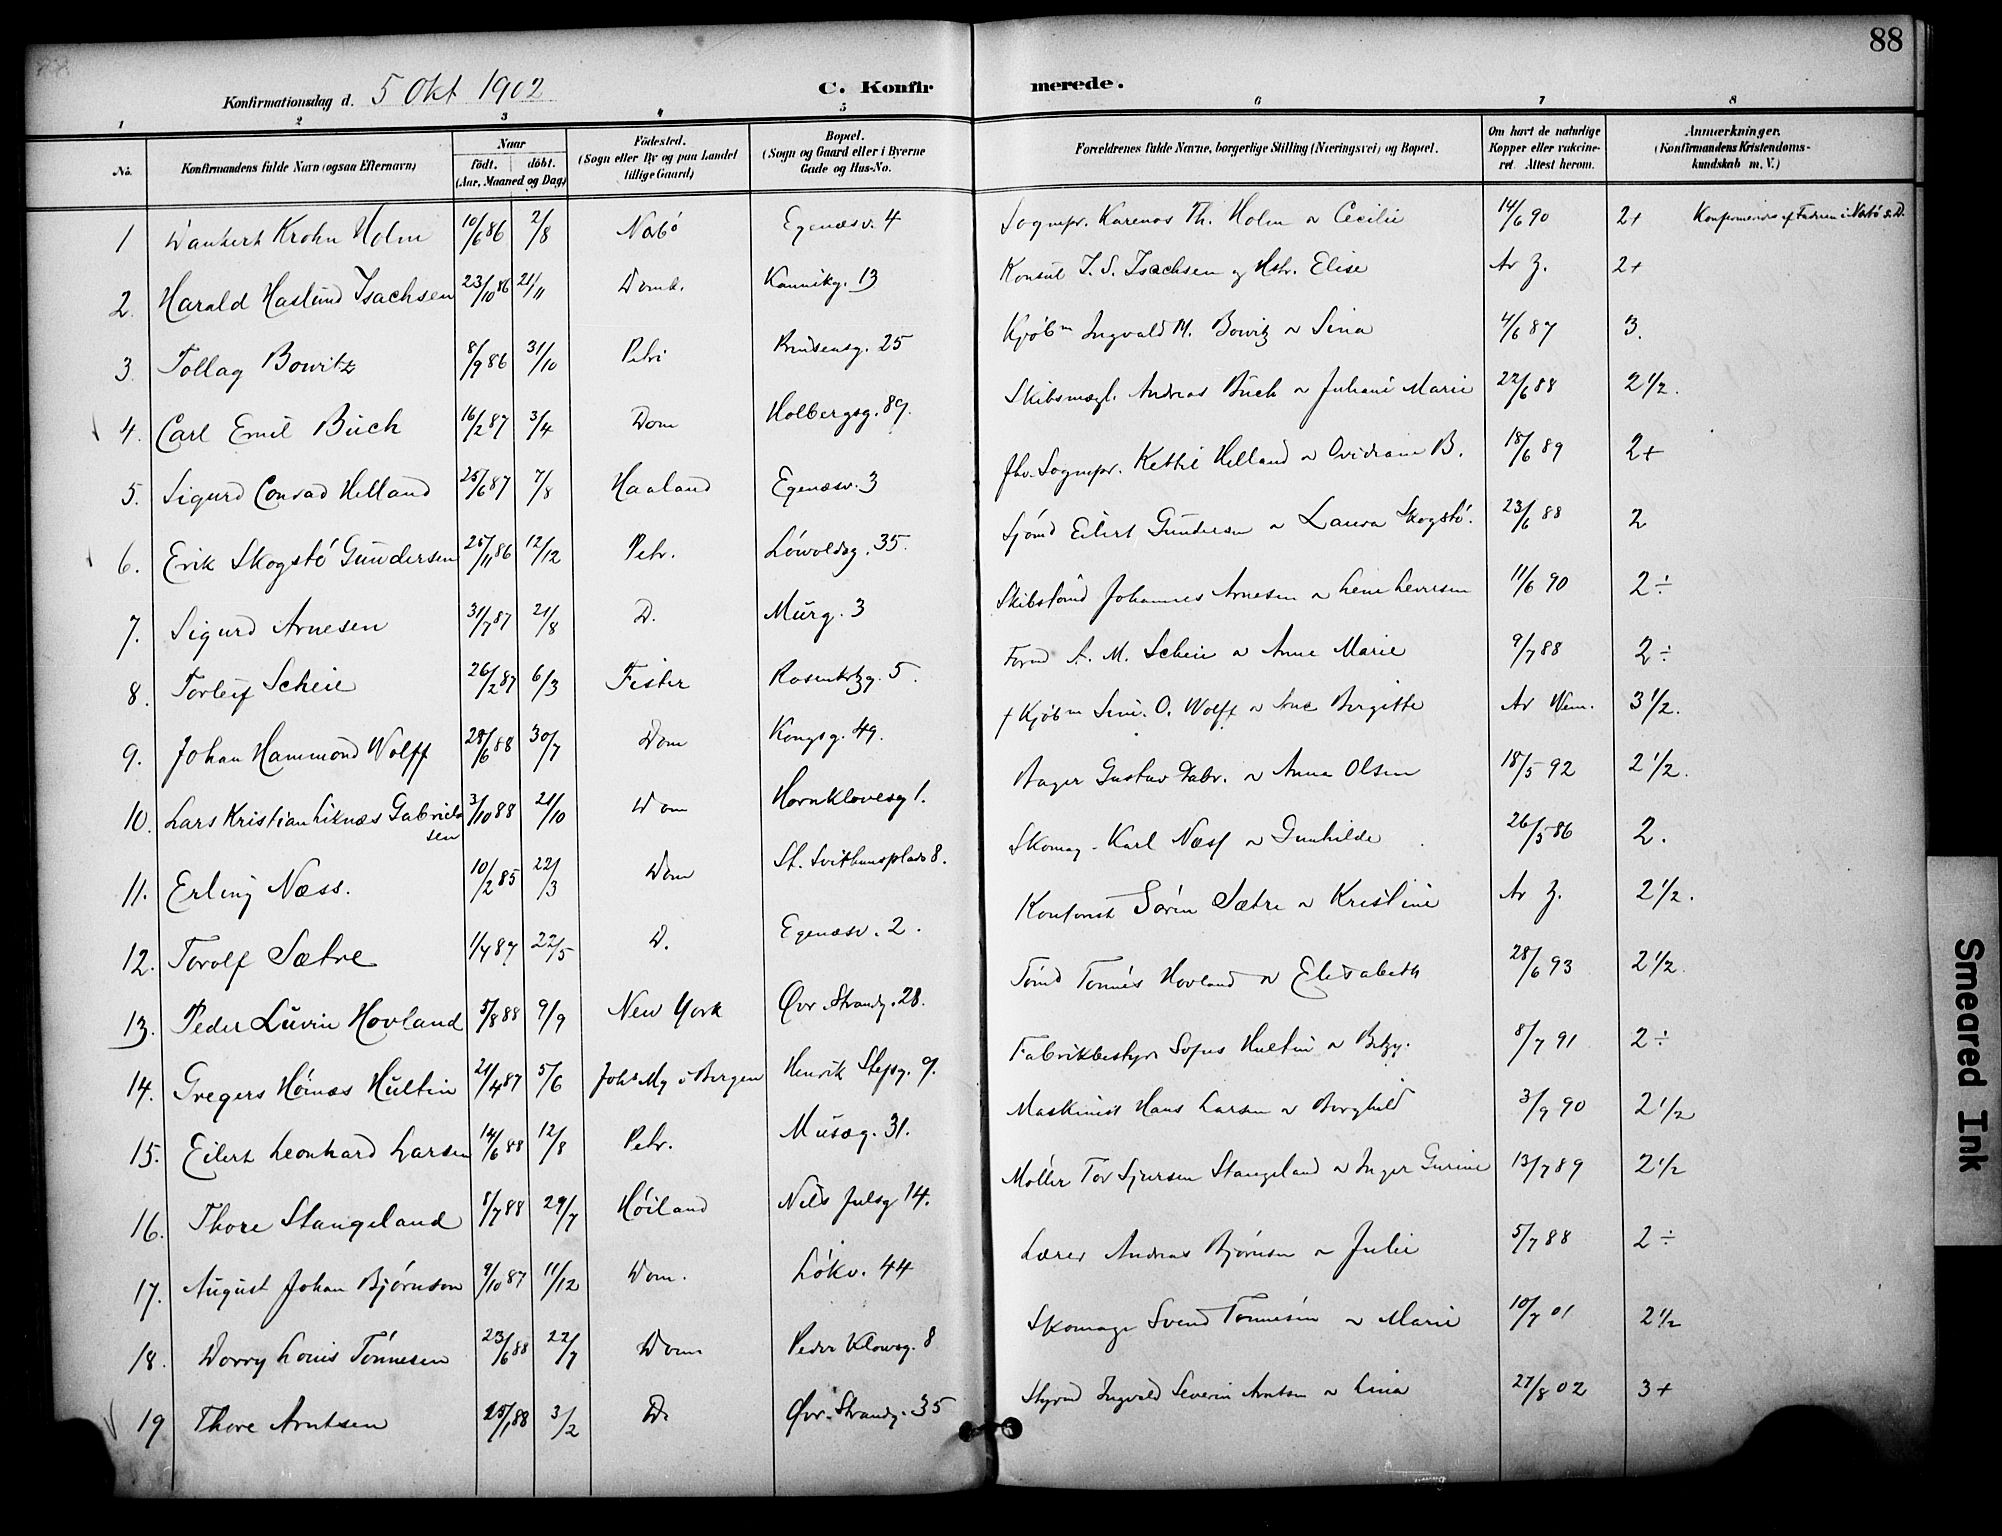 88
Konfirmationsdag d. 5 Okt 1902
C. Konfirmerede.
1 2 3 4 5 6 7 8
No. Konfirmandens fulde Navn (ogsaa Efternavn) Naar födt. döbt. (Aar, Maaned og Dag) Födested. (Sogn eller By og paa Landet tillige Gaard) Bopæl. (Sogn og Gaard eller i Byerne Gade og Hus-No. Forældrenes fulde Navne, borgerlige Stilling (Næringsvei) og Bopæl. Om havt de naturlige Kopper eller vakcineret. Attest herom. Anmærkninger. (Konfirmandens Kristendomskundskab m. V.)
1 Krohn Holm 10/6 86 2/8 Egenæsv. 4 Sognepr. Karenas Th. Holm Cecilie 14/6 90 2+
2. Harald Haslund Isachsen 23/10 86 21/11 Domk. Kannikg. 13 Konsul I. S. Isachsen og Hstr. Elise Av 2+
3. Tollag Bowitz 8/9 86 31/10 Petri Prinsensg. 25 Kjøbm Ingvald M. Bowitz Sina 4/6 87 3.
4. Carl Emil Buch 16/2 87 3/4 Dom Holbergsg. 89. Skibsmægl. Andreas Buch Juliane Marie 22/6 88 2 1/2.
5. Sigurd Conrad Helland 25/6 87 7/8 Haaland Egenæsv. 3 fhv. Sognepr. Kettil Helland B. 18/6 89 2+
6. Erik Skogstö Gundersen 25/11 86 12/12 Petr. Lövoldsg. 35. Sjömd Eilert Gundersen Laura Skogstö. 23/6 88 2
7. Sigurd Arnesen 31/7 87 21/8 D. Murg. 3 Johannes Arnesen Lene 11/6 90 2÷
8. Torleif Scheie 26/2 87 6/3 Fister Rosenkrtzg. 5. A. M. Scheie Anne Marie 9/7 88 2÷
9. Johan Hammond Wolff 28/6 88 30/7 Dom Kongsg. 49. † Kjøbm O. Wolff Bergitte Av 3 1/2.
10. Lars Kristian Liknæs Gabrielsen 3/10 88 21/10 Dom Hornklovesg 1. Bager Gustav Gabr. Anna Olsen 18/5 92 2 1/2.
11. Erling Næss. 10/2 85 22/3 Dom St. Svithunsplads 8. Skomag. Karl Næss Gunhilde 26/5 86 2.
12. Torolf Sætre 1/4 87 22/5 D. Egenæsv. 2. Kontorist Sören Sætre Kristine Av 2 1/2.
13. Peder Luvin Hovland 5/8 88 9/9 New York Øvr. Strandg. 28. Tömd Tönnes Hovland Elisabeth 28/6 93 2 1/2.
14. Gregers Höinæs Hultin 21/4 87 5/6 i Bergen Henrik Stefsg. 9. Fabrikbestyr. Sofus Hultin Betzy. 8/7 91 2÷
15. Eilert Leonhard Larsen 14/6 88 12/8 Petr. Musæg. 31. Maskinist Hans Larsen Borghild 3/9 90 2 1/2
16. Thore Stangeland 8/7 88 29/7 Höiland Nils Julsg 14. Möller Tor Sjursen Stangeland Inger Gurine 13/7 89 2 1/2
17. August Johan Björnson 9/10 87 11/12 Dom. Lökv. 44 Lærer Andreas Björnsen Julie 5/7 88 2÷
18. Dorry Louis Tönnesen 23/6 88 22/7 Dom Peder Klowsg. 8 Skomager Svend Tönnesen Marie 10/7 01 2 1/2
19 Thore Arntsen 25/1 88 3/2 D. Øvr. Strandg. 35 Styrmd Ingvald Severin Arntsen Lina 27/8 02 3+
Smeared Ink